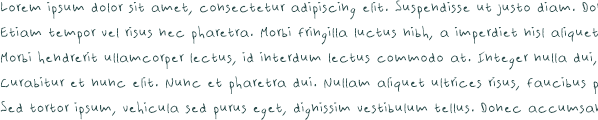 Lorem ipsum dolor sit amet, consectetur adipiscing elit. Suspendisse ut justo diam. Do
Etiam tempor vel risus nec pharetra. Morbi fringilla luctus nibh, a imperdiet nisl aliquet
Morbi hendrerit ullamcorper lectus, id interdum lectus commodo at. Integer nulla dui,
Curabitur et nunc elit. Nunc et pharetra dui. Nullam aliquet ultrices risus, faucibus p
Sed tortor ipsum, vehicula sed purus eget, dignissim vestibulum tellus. Donec accumsa